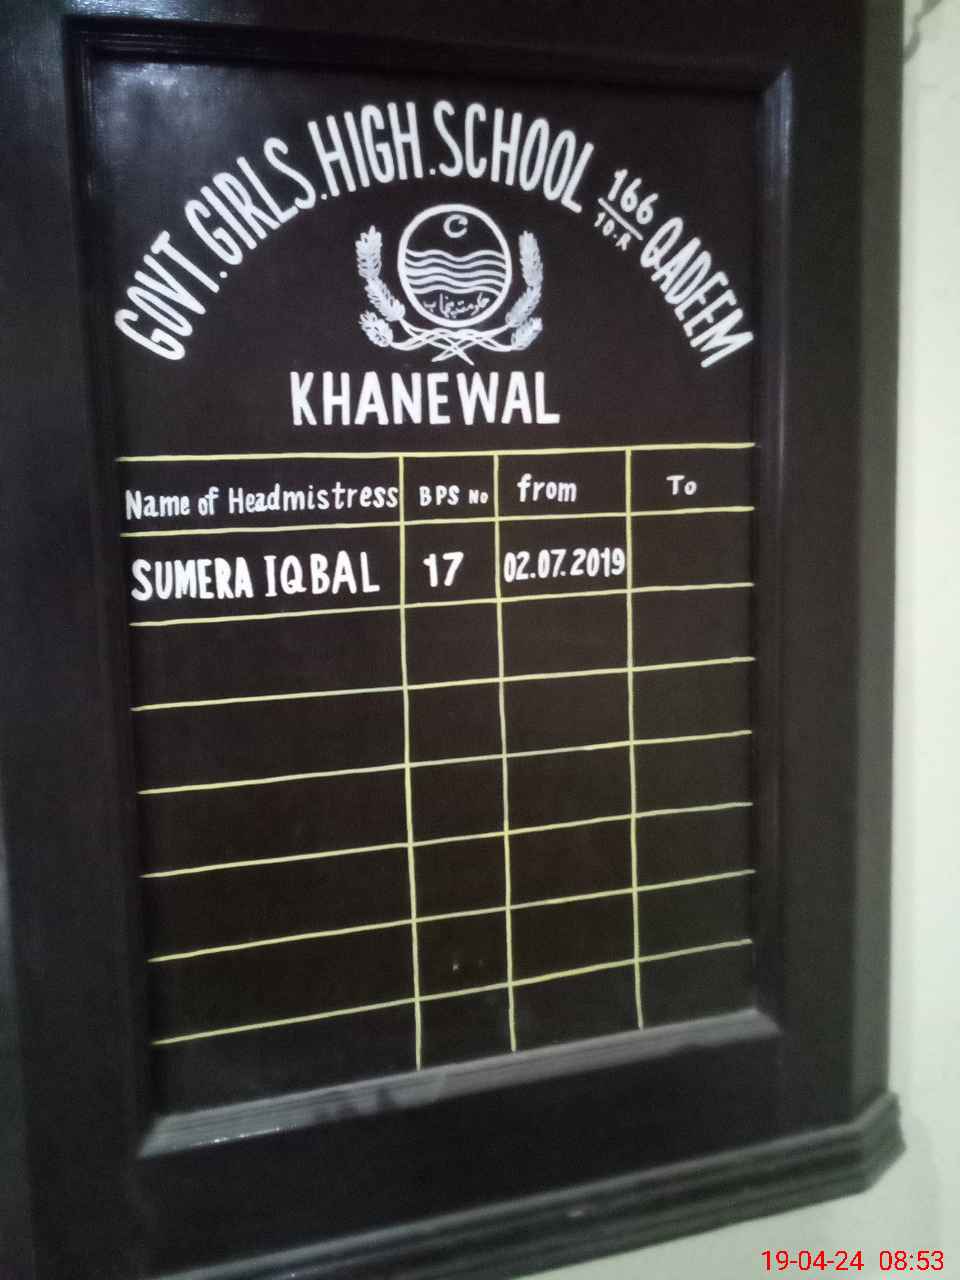 GOVT. GIRLS. HIGH. SCHOOL 166/10.R QADEEM
حکومت پنجاب
KHANEWAL
Name of Headmistress BPS No from To
SUMERA IQBAL 17 02.07.2019
19-04-24 08:53